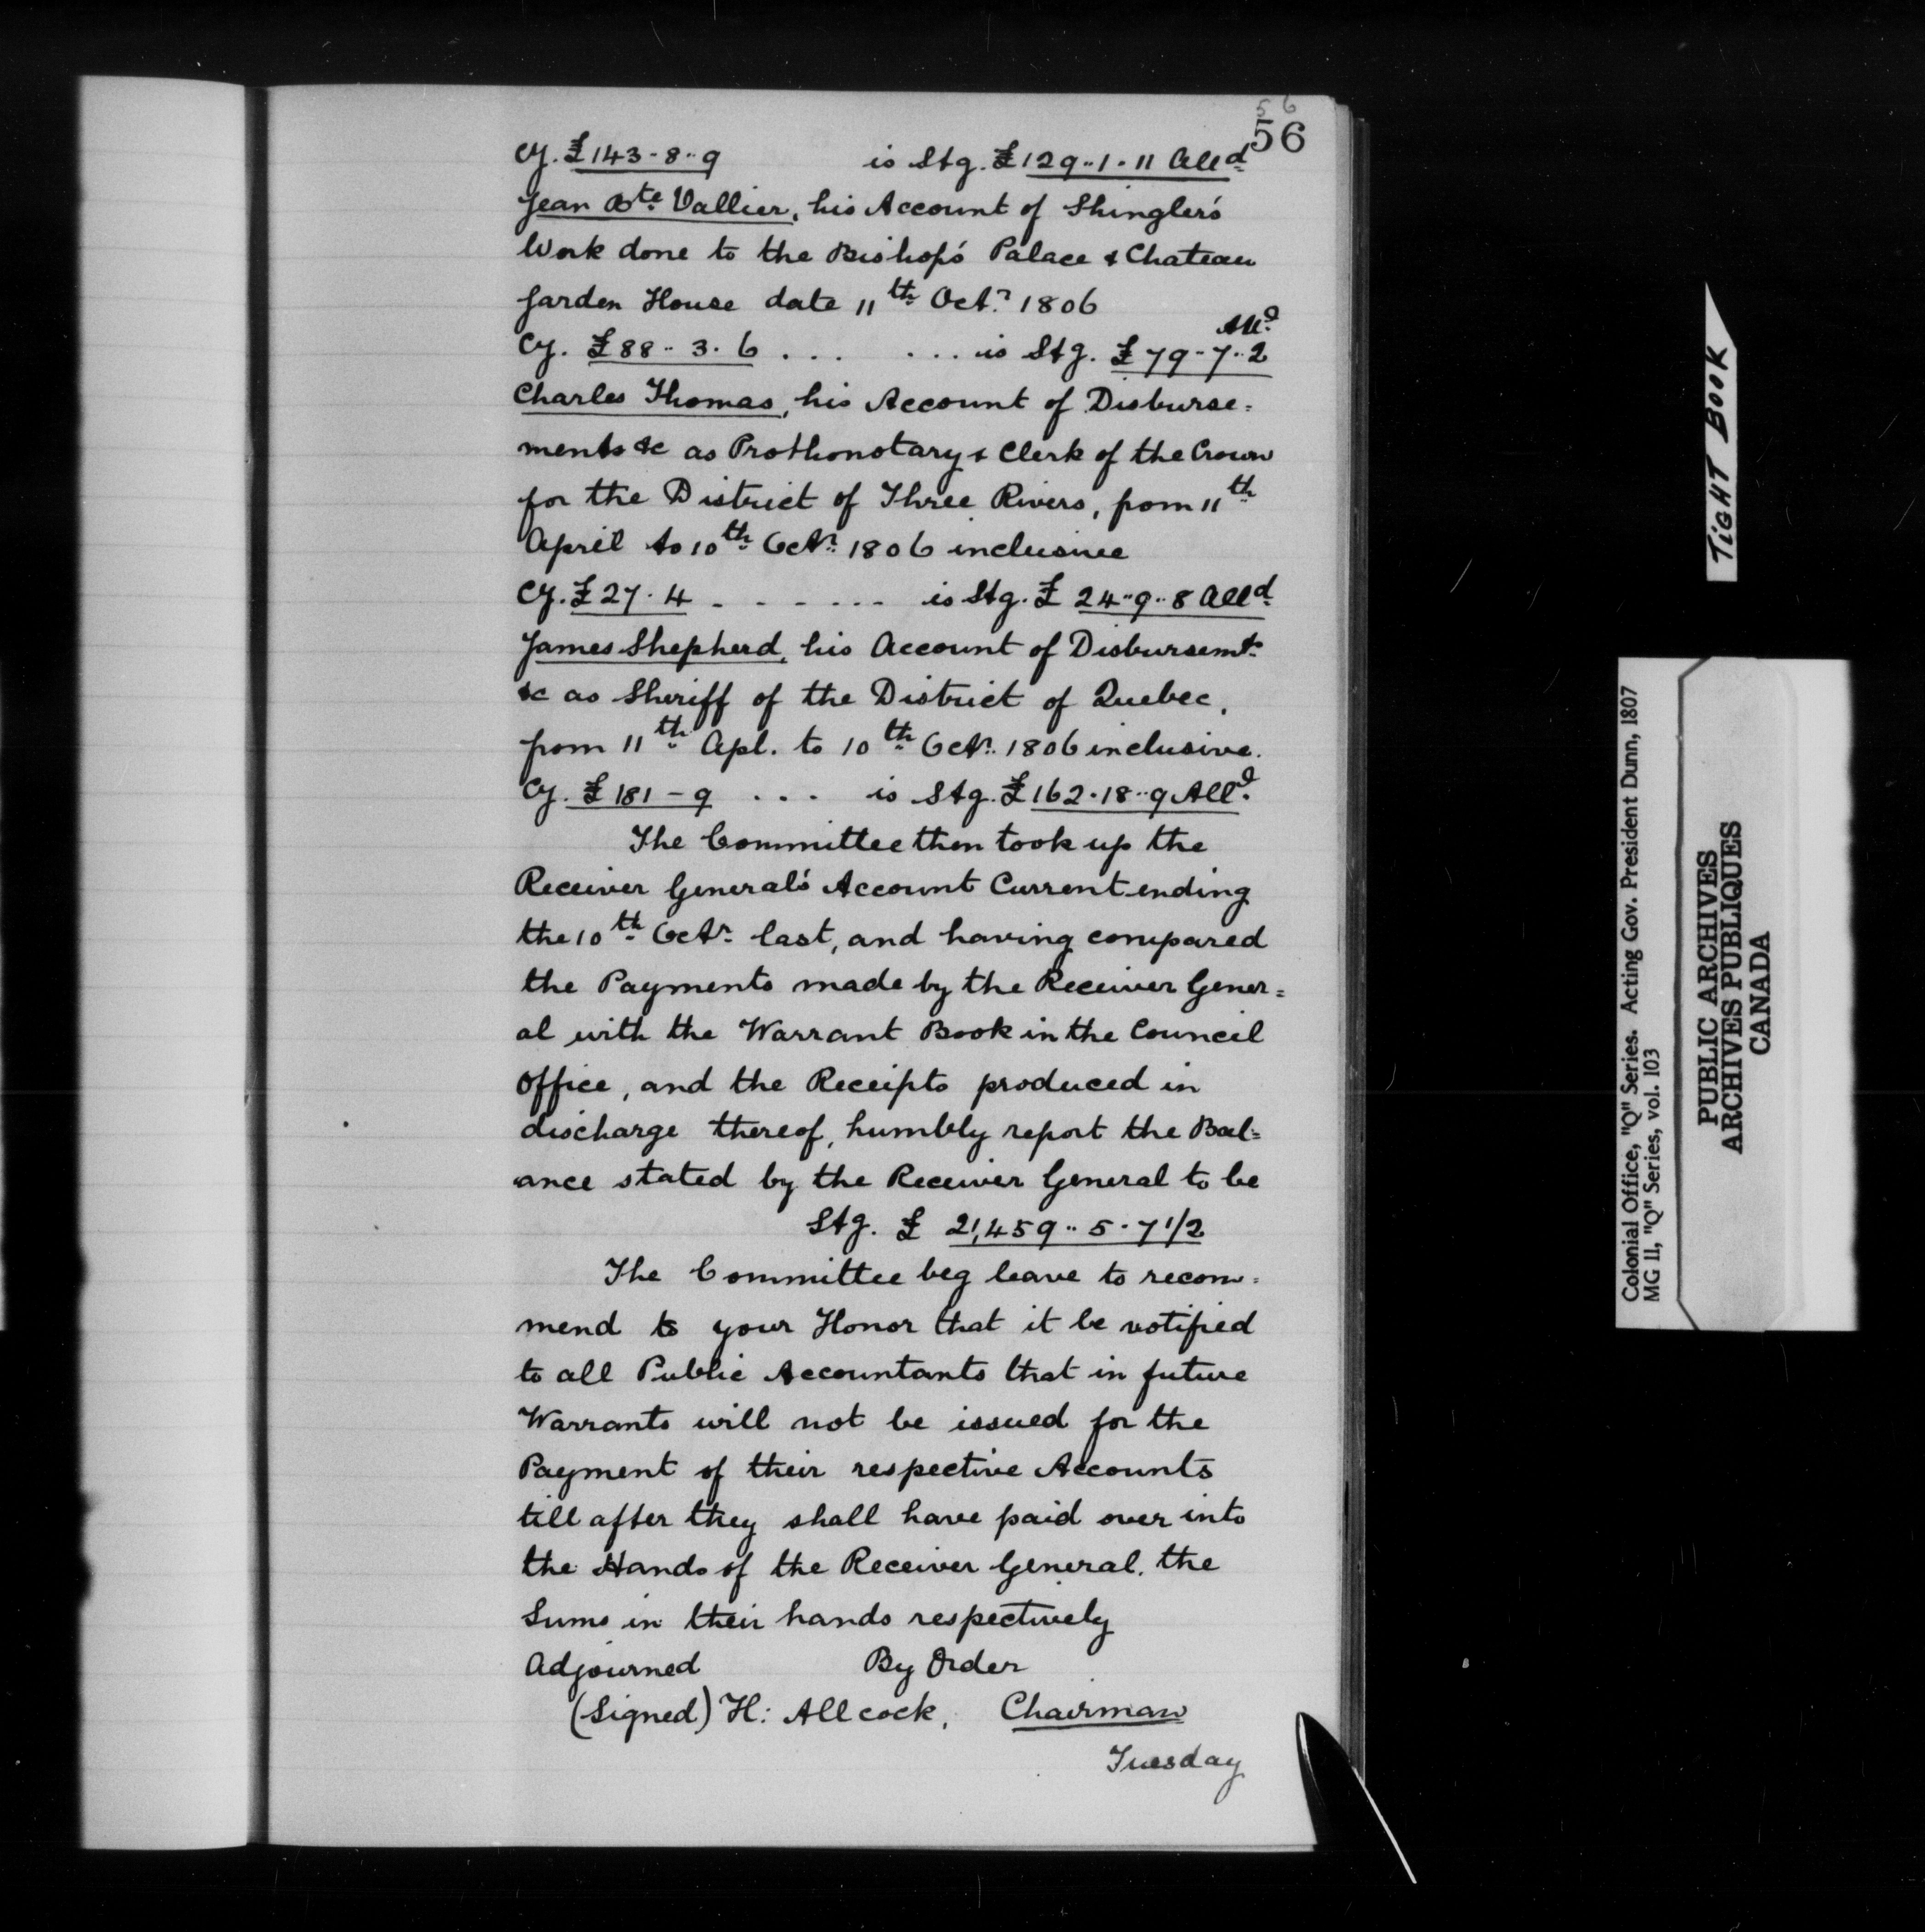 56
56
Cy. £143-8..9 is Stg. £129..1.11 Alld
Jean Bte. Vallier, his Account of Shingler's
Work done to the Bishop's Palace & Chateau
Garden House date 11th Octr. 1806
Alld.
Cy. £88..3.6 ... ... is Stg. £79-7..2
Charles Thomas, his Account of Disburse=
ments &c as Prothonotary & Clerk of the Crown
for the District of Three Rivers, from 11th
April to 10th Octr. 1806 inclusive
Cy. £27.4 - - - - - - is Stg. £24..9..8 Alld.
James Shepherd, his Account of Disbursemts.
&c as Sheriff of the District of Quebec,
from 11th Apl. to 10th Octr. 1806 inclusive.
Cy. £181-9 ... is Stg. £162.18..9 Alld.
The Committee then took up the
Receiver General's Account Current ending
the 10th Octr. last, and having compared
the Payments made by the Receiver Gener=
al with the Warrant Book in the Council
Office, and the Receipts produced in
discharge thereof, humbly report the Bal=
ance stated by the Receiver General to be
Stg. £ 21,459..5.7 1/2
The Committee beg leave to recom=
mend to your Honor that it be notified
to all Public Accountants that in future
Warrants will not be issued for the
Payment of their respective Accounts
till after they shall have paid over into
the Hands of the Receiver General, the
Sums in their hands respectively
Adjourned By Order
(Signed) H: Allcock, Chairman
Tuesday
TIGHT BOOK
Colonial Office, "Q" Series. Acting Gov. President Dunn, 1807
MG 11, "Q" Series, vol. 103
PUBLIC ARCHIVES
ARCHIVES PUBLIQUES
CANADA